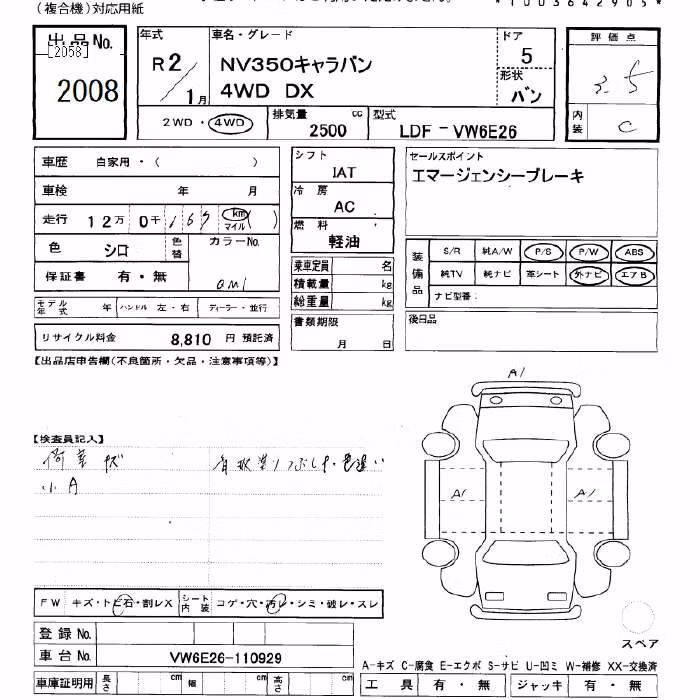 (複合機)対応用紙
*1003642905*
出品No.
[2058]
2008
年式
R2/1月
車名・グレード
NV350キャラバン
4WD DX
ドア
5
形状
バン
評価点
3.5
内装
C
2WD・4WD
排気量
2500 cc
型式
LDF-VW6E26
車歴 自家用・( )
車検 年 月
走行 12万 0千 169 km マイル ( )
色 シロ
色替
カラーNo.
QM1
保証書 有・無
モデル年式 年 ハンドル 左・右 ディーラー・並行
リサイクル料金 8,810 円 預託済
シフト
IAT
冷房
AC
燃料
軽油
乗車定員 名
積載量 kg
総重量 kg
書類期限
月 日
セールスポイント
エマージェンシーブレーキ
装備品
S/R 純A/W P/S P/W ABS
純TV 純ナビ 革シート 外ナビ エアB
ナビ型番:
後日品
【出品店申告欄(不良箇所・欠品・注意事項等)】
【検査員記入】
荷室キズ
小A
色違い
A1
A1
A1
FW キズ・トビ石・割レX
シート内装 コゲ・穴・汚レ・シミ・破レ・スレ
登録No.
車台No. VW6E26-110929
車庫証明用 長さ cm 幅 cm 高さ cm
スペア
A-キズ C-腐食 E-エクボ S-サビ U-凹ミ W-補修 XX-交換済
工具 有・無 ジャッキ 有・無